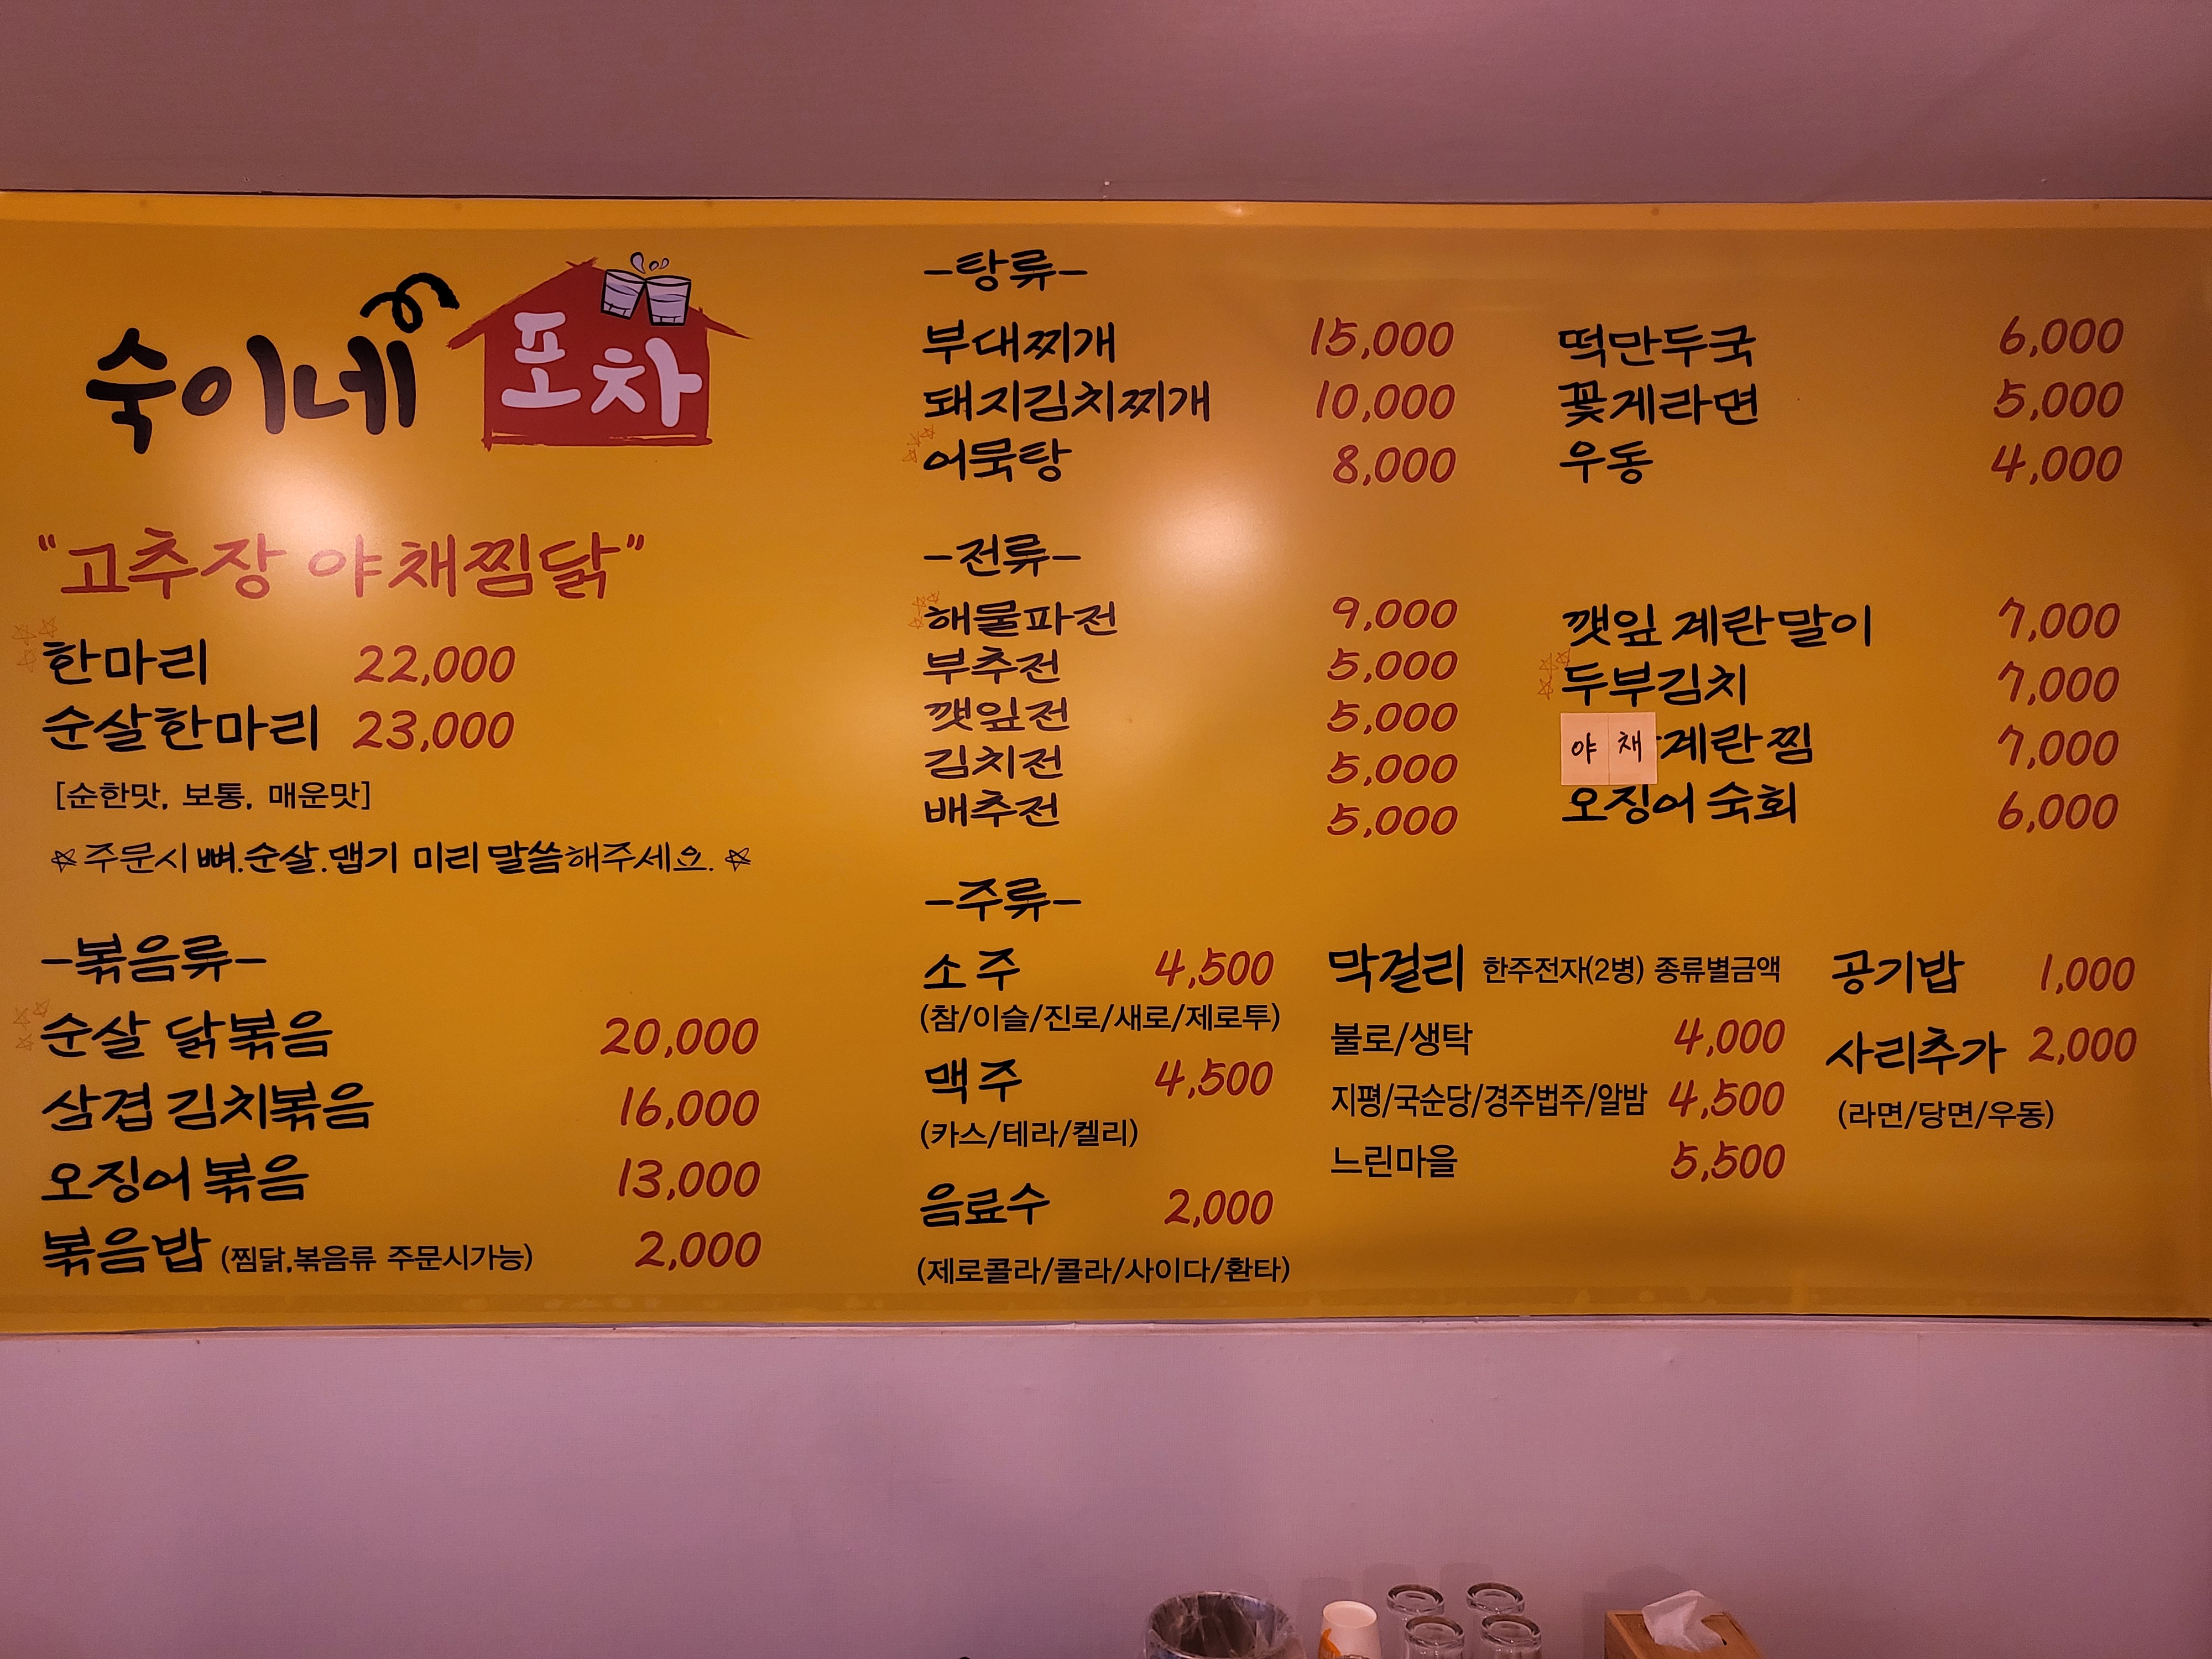 숙이네 포차
"고추장 야채찜닭"
한마리 22,000
순살한마리 23,000
[순한맛, 보통, 매운맛]
☆주문시 뼈.순살.맵기 미리 말씀해주세요.☆
-볶음류-
순살 닭볶음 20,000
삼겹 김치볶음 16,000
오징어 볶음 13,000
볶음밥 (찜닭,볶음류 주문시가능) 2,000
-탕류-
부대찌개 15,000
돼지김치찌개 10,000
어묵탕 8,000
떡만두국 6,000
꽃게라면 5,000
우동 4,000
-전류-
해물파전 9,000
부추전 5,000
깻잎전 5,000
김치전 5,000
배추전 5,000
깻잎 계란말이 7,000
두부김치 7,000
야채계란찜 7,000
오징어 숙회 6,000
-주류-
소주 4,500
(참/이슬/진로/새로/제로투)
맥주 4,500
(카스/테라/켈리)
음료수 2,000
(제로콜라/콜라/사이다/환타)
막걸리 한주전자(2병) 종류별금액
불로/생탁 4,000
지평/국순당/경주법주/알밤 4,500
느린마을 5,500
공기밥 1,000
사리추가 2,000
(라면/당면/우동)